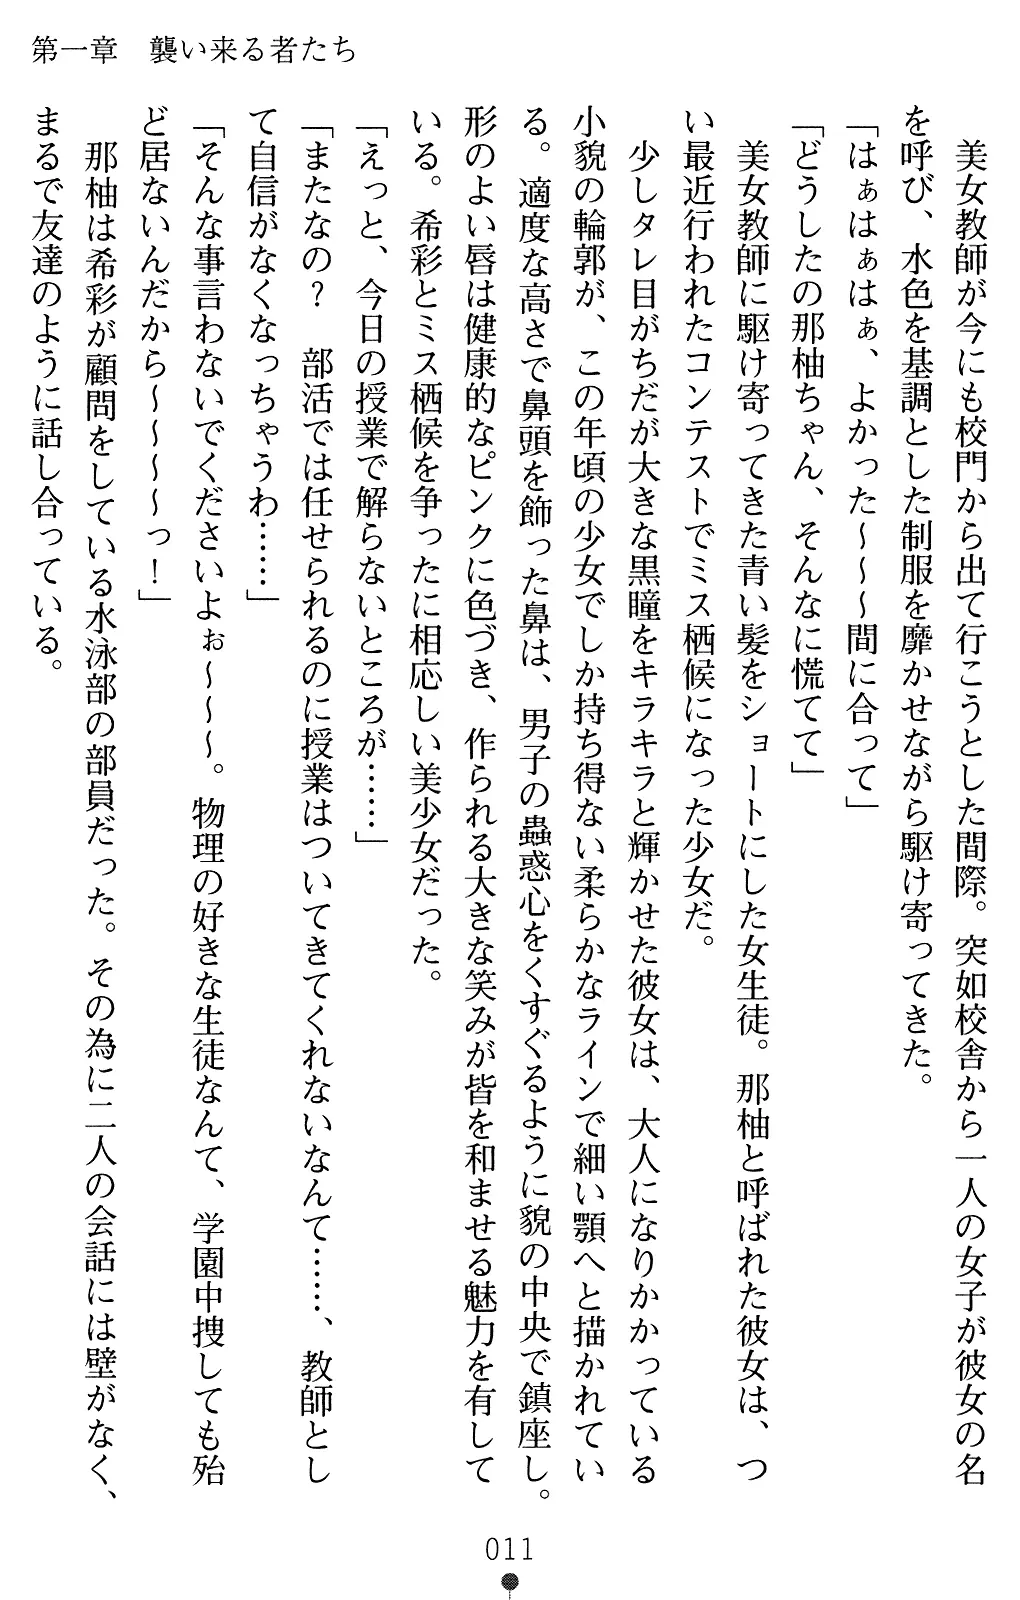 第一章　襲い来る者たち
　美女教師が今にも校門から出て行こうとした間際。突如校舎から一人の女子が彼女の名
を呼び、水色を基調とした制服を靡かせながら駆け寄ってきた。
「はぁはぁはぁ、よかった～～～間に合って」
「どうしたの那柚ちゃん、そんなに慌てて」
　美女教師に駆け寄ってきた青い髪をショートにした女生徒。那柚と呼ばれた彼女は、つ
い最近行われたコンテストでミス栖候になった少女だ。
　少しタレ目がちだが大きな黒瞳をキラキラと輝かせた彼女は、大人になりかかっている
小貌の輪郭が、この年頃の少女でしか持ち得ない柔らかなラインで細い顎へと描かれてい
る。適度な高さで鼻頭を飾った鼻は、男子の蟲惑心をくすぐるように貌の中央で鎮座し。
形のよい唇は健康的なピンクに色づき、作られる大きな笑みが皆を和ませる魅力を有して
いる。希彩とミス栖候を争ったに相応しい美少女だった。
「えっと、今日の授業で解らないところが……」
「またなの？　部活では任せられるのに授業はついてきてくれないなんて……、教師とし
て自信がなくなっちゃうわ……」
「そんな事言わないでくださいよぉ～～～。物理の好きな生徒なんて、学園中捜しても殆
ど居ないんだから～～～～っ！」
　那柚は希彩が顧問をしている水泳部の部員だった。その為に二人の会話には壁がなく、
まるで友達のように話し合っている。
011